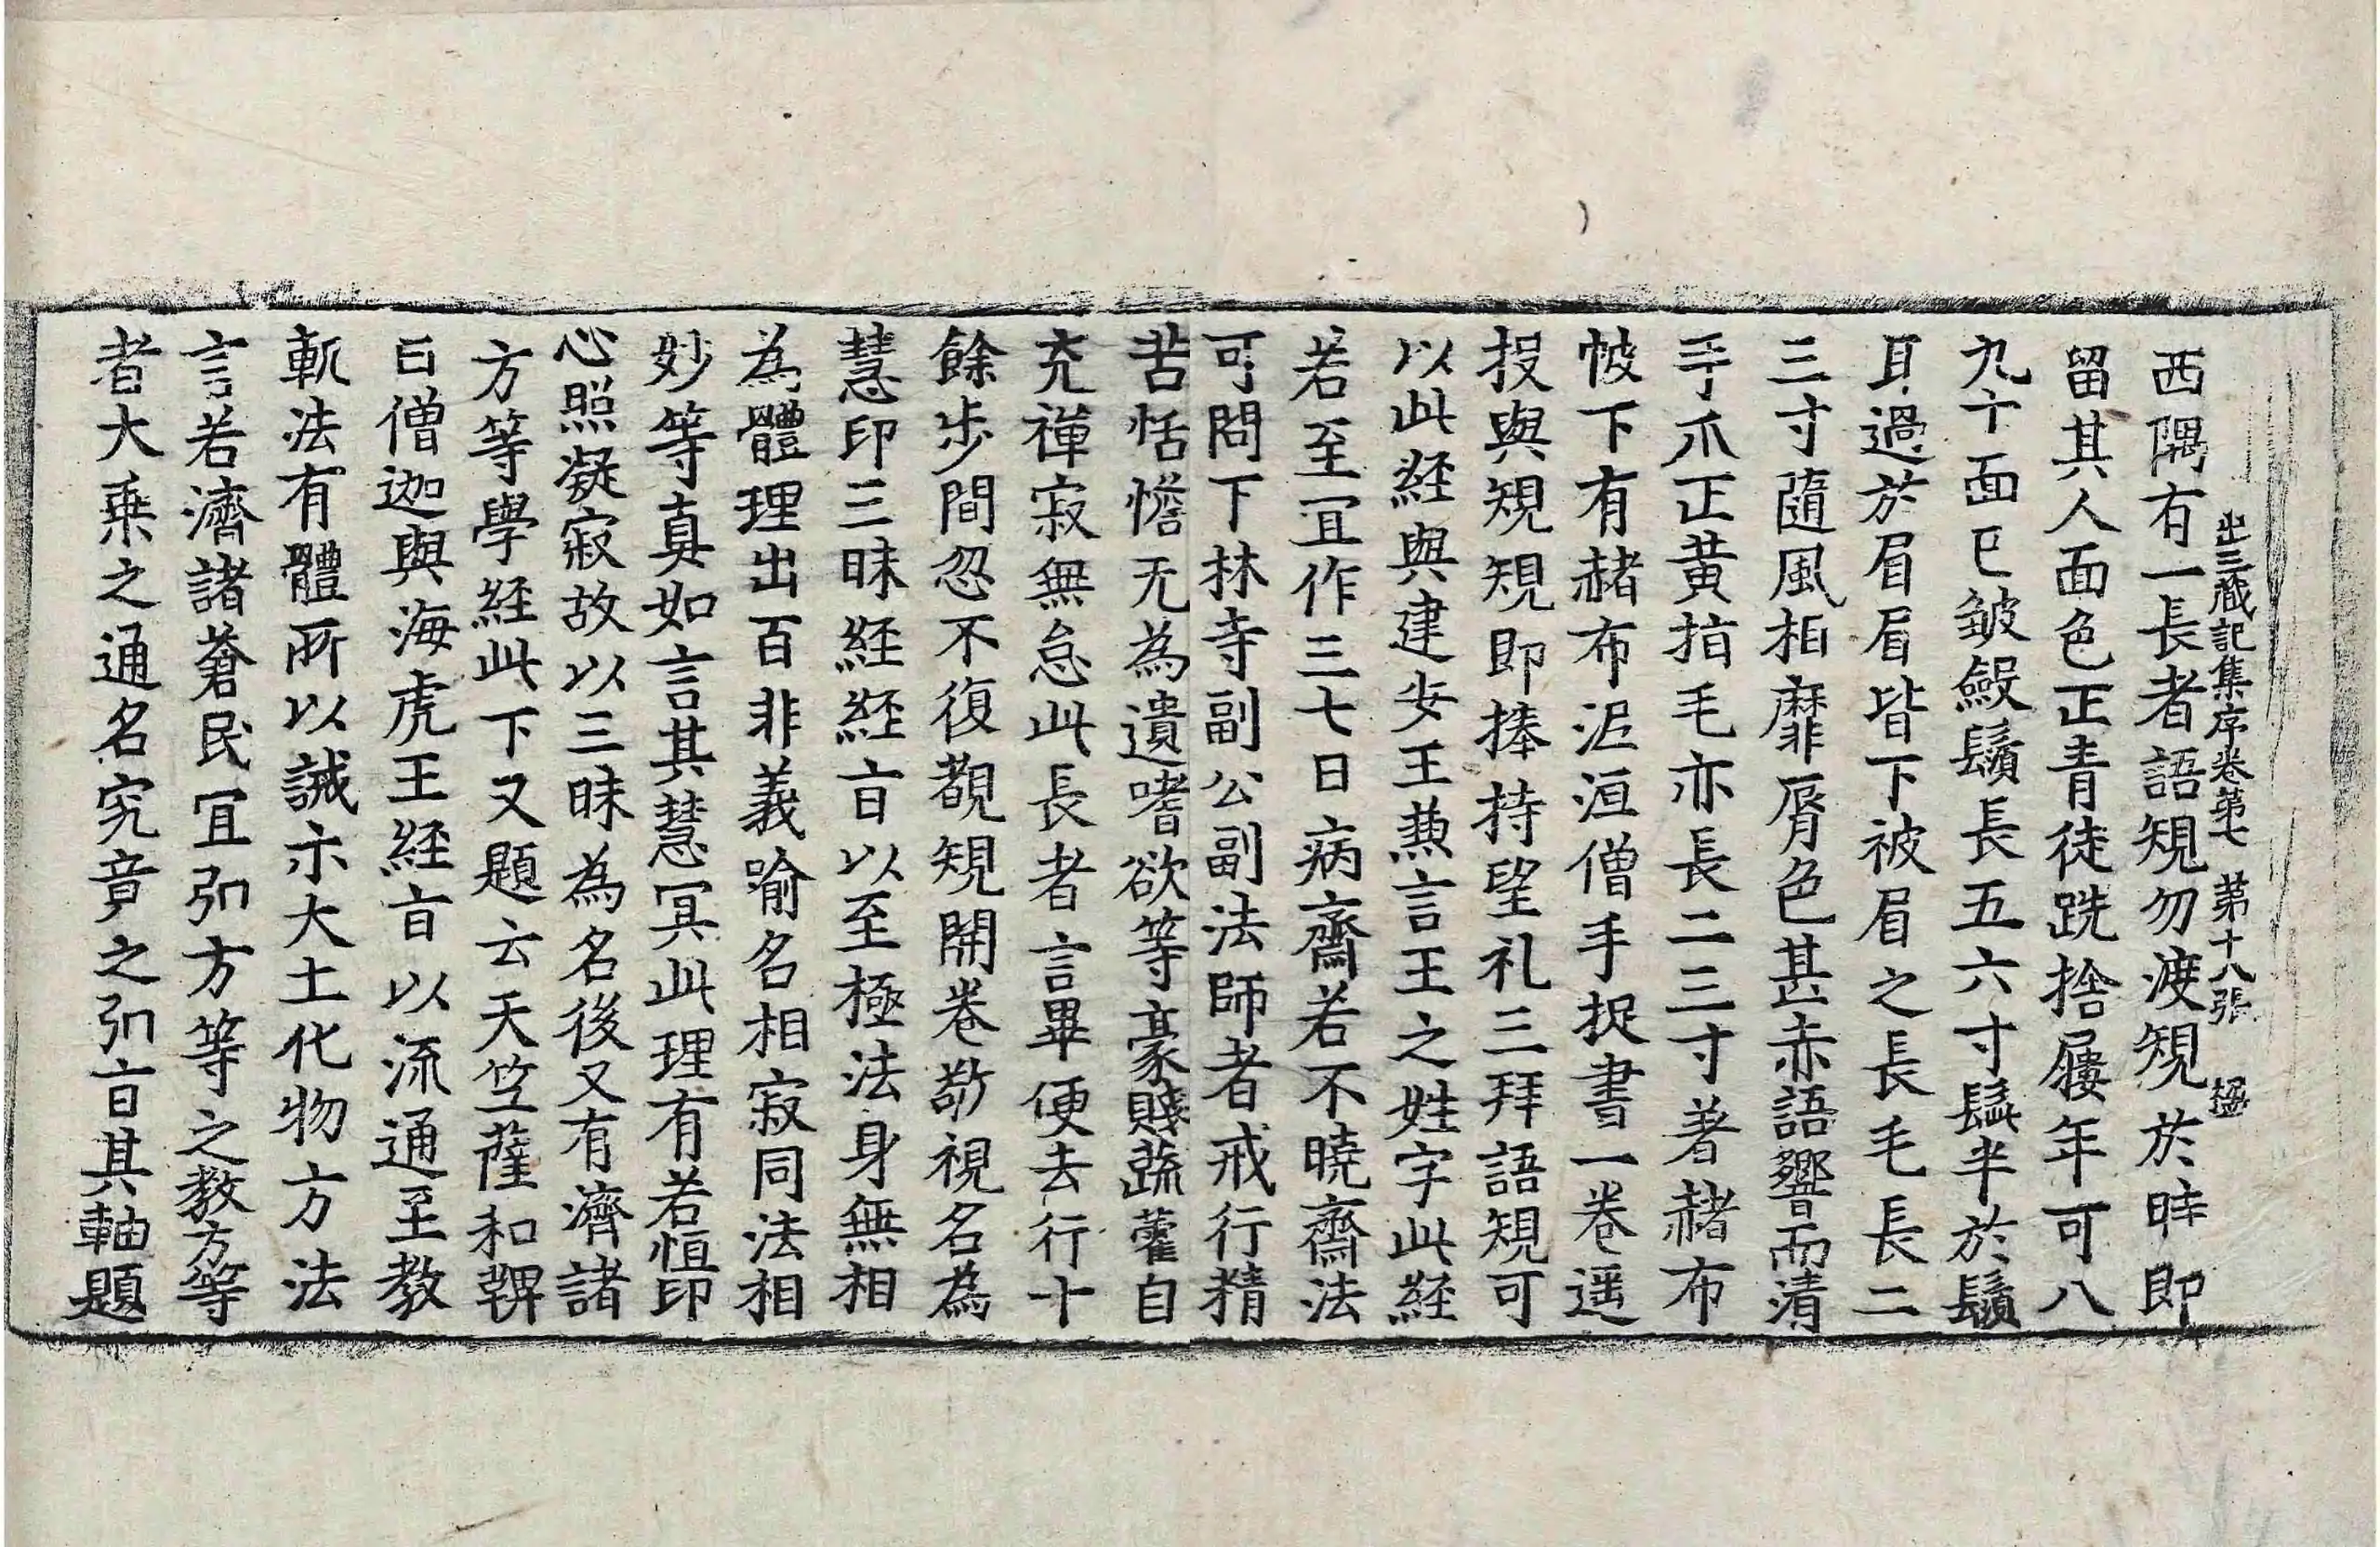 出三藏記集序卷第七 第十八張 㨗
西隅有一長者語䂓勿渡䂓於時即
留其人面色正青徒跣捨屨年可八
九十面已皺斂鬚長五六寸髯半於鬚
耳過於眉眉皆下被眉之長毛長二
三寸隨風相靡脣色甚赤語響而清
手爪正黃指毛亦長二三寸著赭布
帔下有赭布泥洹僧手捉書一卷遥
投與䂓䂓即捧持望礼三拜語䂓可
以此経與建安王兼言王之姓字此経
若至冝作三七日病齋若不曉齋法
可問下林寺副公副法師者戒行精
苦恬憺无為遺嗜欲等豪賤蔬藿自
充禪寂無怠此長者言畢便去行十
餘步間忽不復覩䂓開卷敬視名為
慧印三昧経経㫖以至極法身無相
為體理出百非義喻名相寂同法相
妙等真如言其慧冥此理有若恒印
心照凝寂故以三昧為名後又有濟諸
方等學経此下又題云天竺薩和鞞
曰僧迦與海虎王経㫖以流通至教
軌法有體所以誡示大士化物方法
言若濟諸蒼民冝引方等之教方等
者大乗之通名究竟之引㫖其軸題